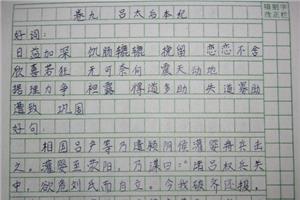 卷九 吕太后本纪
好词:
日益加深 饥肠辘辘 挽留 恋恋不舍
欣喜若狂 无可奈何 震天动地
据理力争 袒露 得道多助 失道寡助
遣致 巩固
好句:
相国吕产等乃遣颍阴侯灌婴将兵击
之。灌婴至荥阳,乃谋曰:“诸吕权兵关
中,欲危刘氏而自立。今我破齐还报,